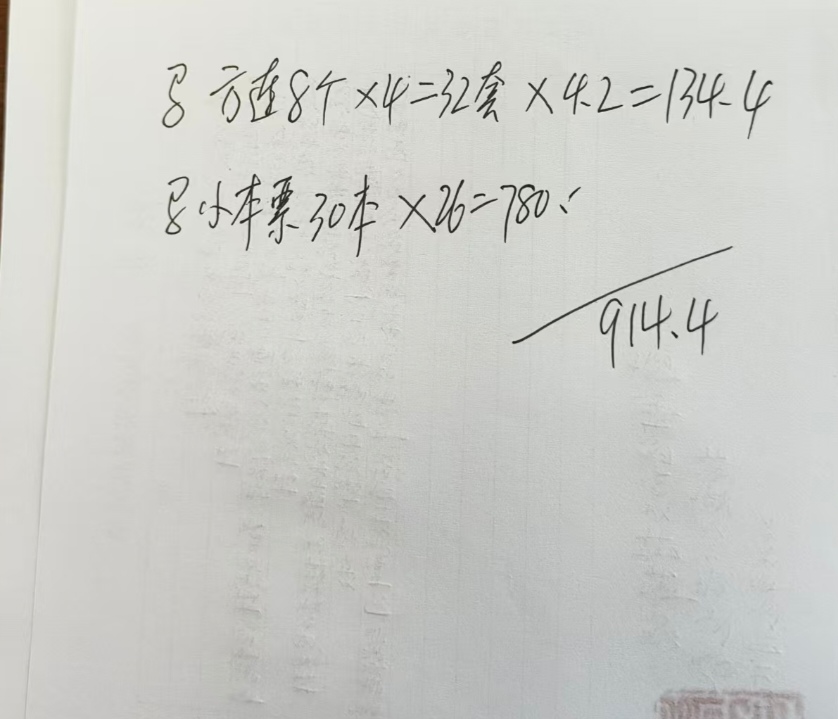 马方连8个×4=32套×4.2=134.4
马小本票30本×26=780.
914.4